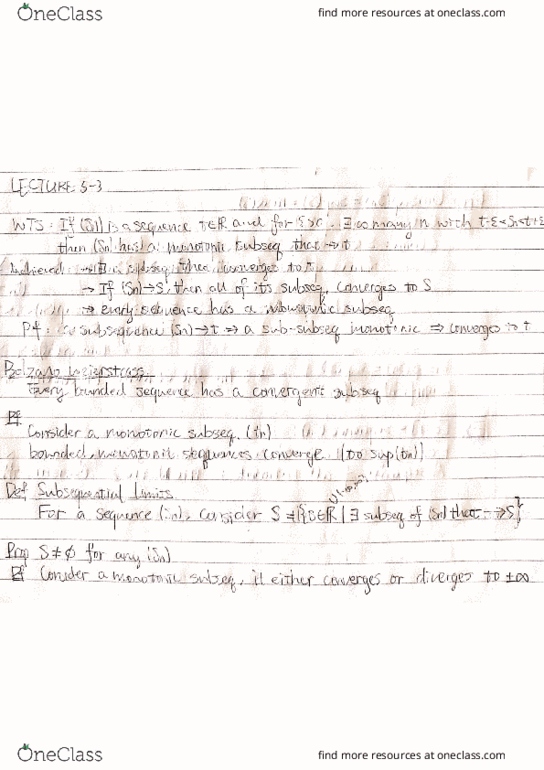 OneClass
find more resources at oneclass.com
LECTURE 5-3
WTS: If (Sn) is a sequence t∈R and for ε>0, ∃ ∞ many n with t-ε<Sn<t+ε
then (Sn) has a monotonic subseq that → t
converges to
→ If (Sn)→S, then all of its subseq. converges to S
→ every sequence has a monotonic subseq
Pf: subsequence (Sn)→t ⇒ a sub-subseq monotonic ⇒ converges to t
Bolzano Weierstrass
Every bounded sequence has a convergent subseq
Pf
Consider a monotonic subseq. (tn)
bounded, monotonic sequences converge (to sup(tn))
Def Subsequential Limits
For a sequence (Sn), consider S = {t∈R | ∃ subseq of (Sn) that → S}
U{-∞,∞}
Prop S≠∅ for any (Sn)
Pf Consider a monotonic subseq, it either converges or diverges to ±∞
OneClass
find more resources at oneclass.com